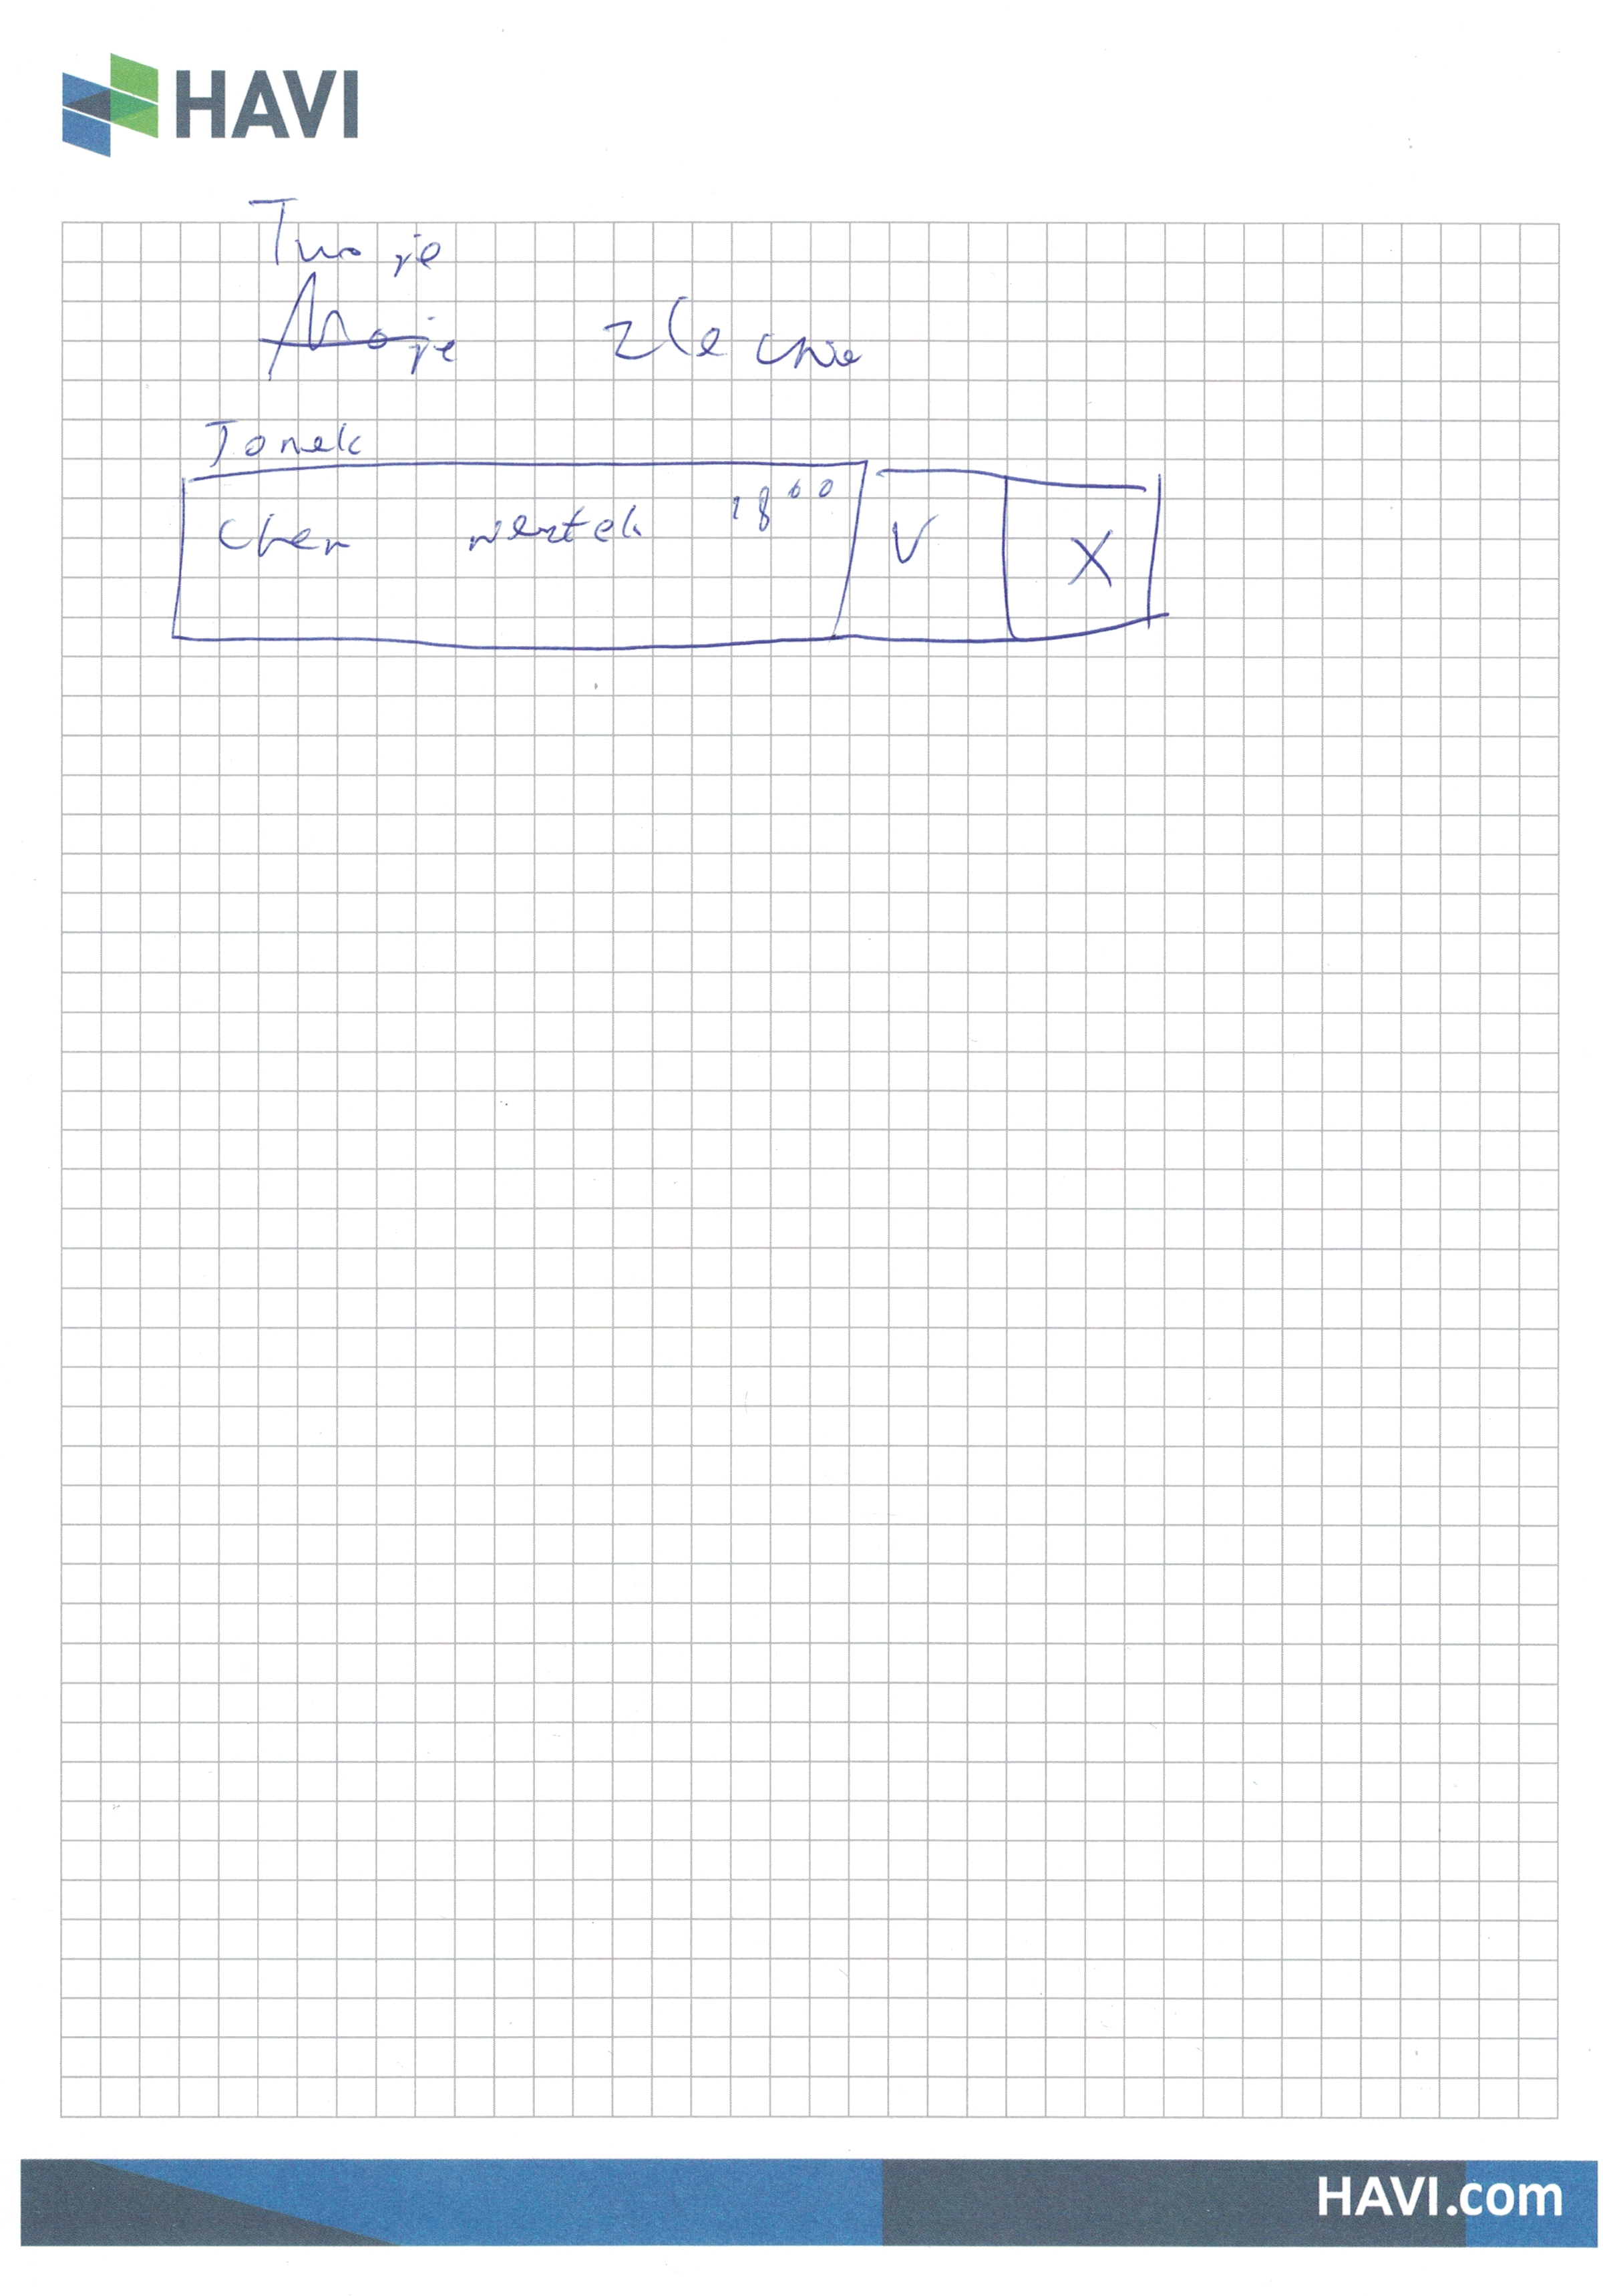 HAVI
Twoje
Moje zlecnie
Jonek
Chen wertek 18⁰⁰
V X
HAVI.com